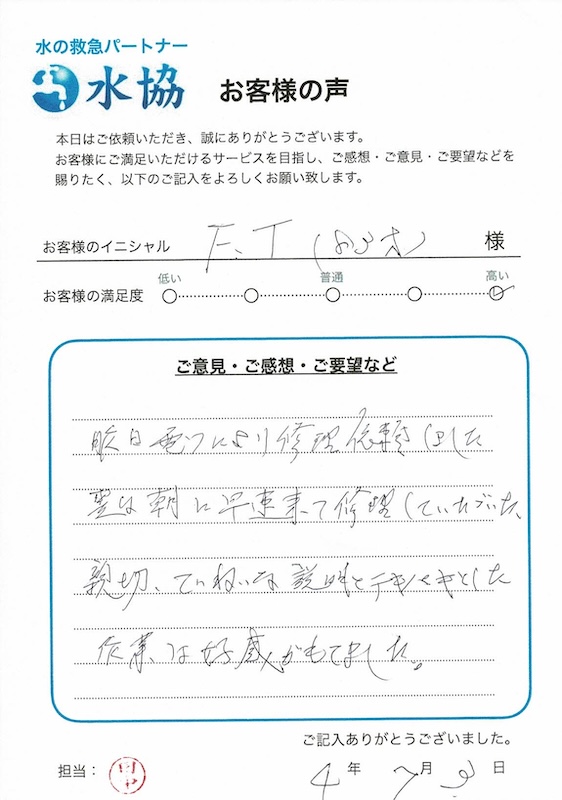 水の救急パートナー
水協 お客様の声
本日はご依頼いただき、誠にありがとうございます。
お客様にご満足いただけるサービスを目指し、ご感想・ご意見・ご要望などを
賜りたく、以下のご記入をよろしくお願い致します。
お客様のイニシャル F、T 様
低い 普通 高い
お客様の満足度
ご意見・ご感想・ご要望など
昨日電ワにより修理依頼しました
翌は朝に早速来て修理していたゞいた、
親切、ていねいな説明とテキパキとした
作業は好感がもてました。
ご記入ありがとうございました。
担当：
4年 7月 3日